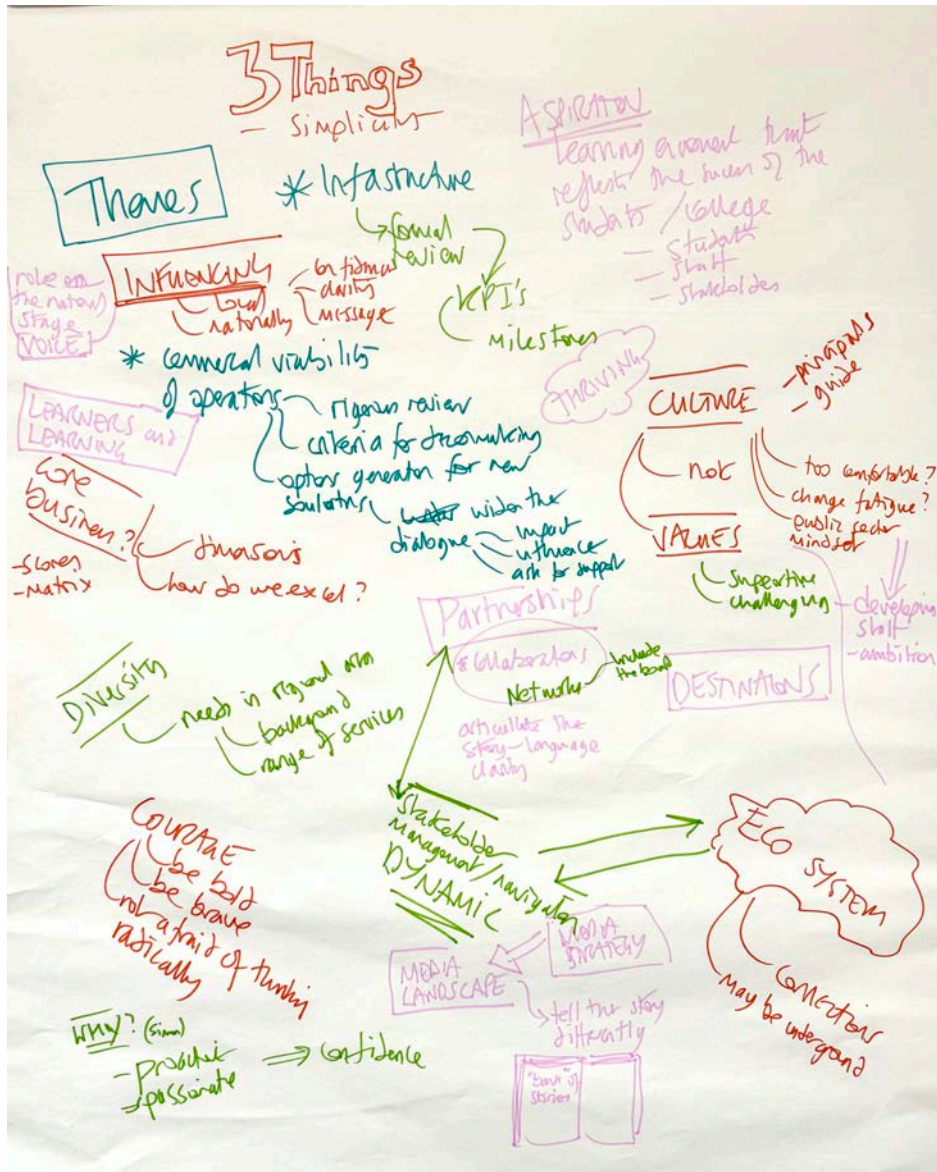 3 Things
- Simplicity
ASPIRATION
Learning that
reflects the of the
students / college
- students
- staff
- stakeholder
Themes
* Infastructure
formal
review
KPI's
milestones
INFLUENCING
local
naturally
clarity
message
role on
the national
stage
VOICE
* commercial viability
of operations
rigorous review
criteria for
options generator for new
widen the
dialogue
impact
influence
ask for support
THRIVING
CULTURE
- principals
- guide
not
too comfortable?
change fatigue?
public sector
mindset
VALUES
supportive
challenging
- developing
staff
- ambition
LEARNERS and
LEARNING
core
business?
- scores
- matrix
how do we excel?
Partnerships
collaborations
Networks
include
the board
articulate the
story - language
clarity
DESTINATIONS
Diversity
needs in regional area
background
range of services
Stakeholder
Management / navigation
DYNAMIC
ECO SYSTEM
connections
may be underground
COURAGE
be bold
be brave
not afraid of thinking
radically
MEDIA
STRATEGY
MEDIA
LANDSCAPE
tell the story
differently
"bank" of
stories
WHY? (Simon)
-
passionate
confidence